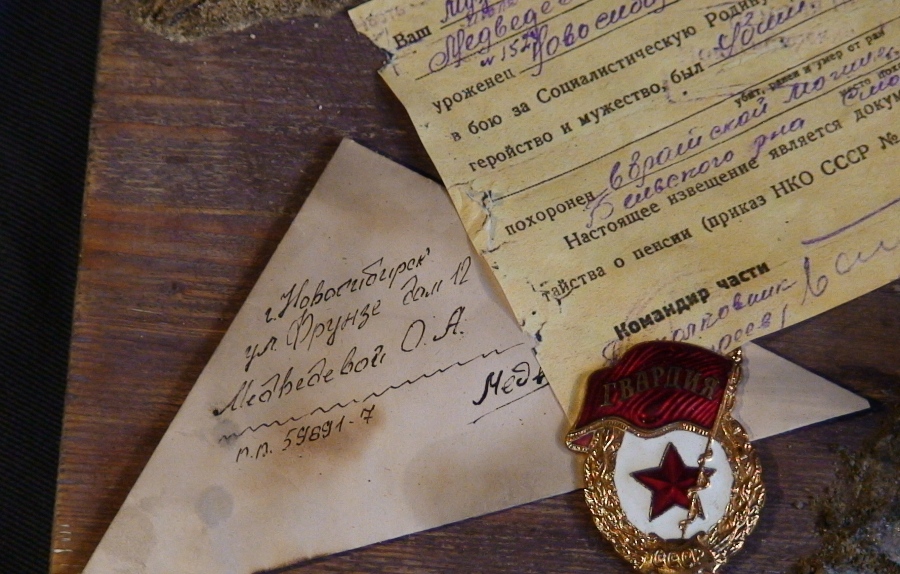 Ваш муж
Медведев
№ 152
уроженец Новосибир
в бою за Социалистическую Родину
геройство и мужество, был убит
убит, ранен и умер от ран
похоронен в братской могиле
Бельского р-на
Настоящее извещение является докум
тайства о пенсии (приказ НКО СССР №
Командир части
г. Новосибирск
ул. Фрунзе дом 12
Медведевой О.А.
п.п. 59891-7
Медв
ГВАРДИЯ